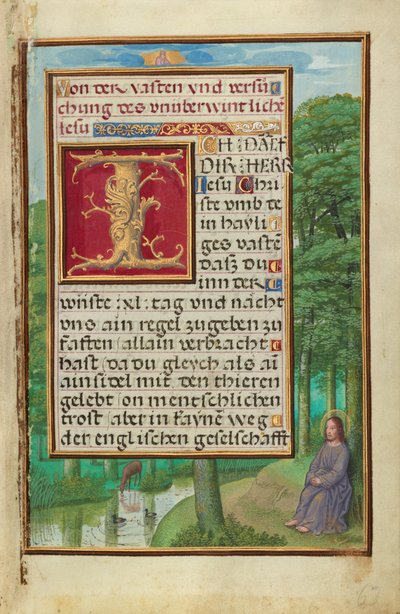 Von der vasten vnd versu
chung des vnüberwintliche
Jesu
ICH DAL
DIR HERR
Jesu Chri
ste vmb te
in hayli
ges vastē
dasz du
inn der
wüste :xl: tag vnd nacht
vns ain regel zu geben zu
fasten allain verbracht
hast da du gleych als ai
ainsidel mit den thieren
gelebt on mentschlichen
trost aber in kayne weg
der englischen geselschafft